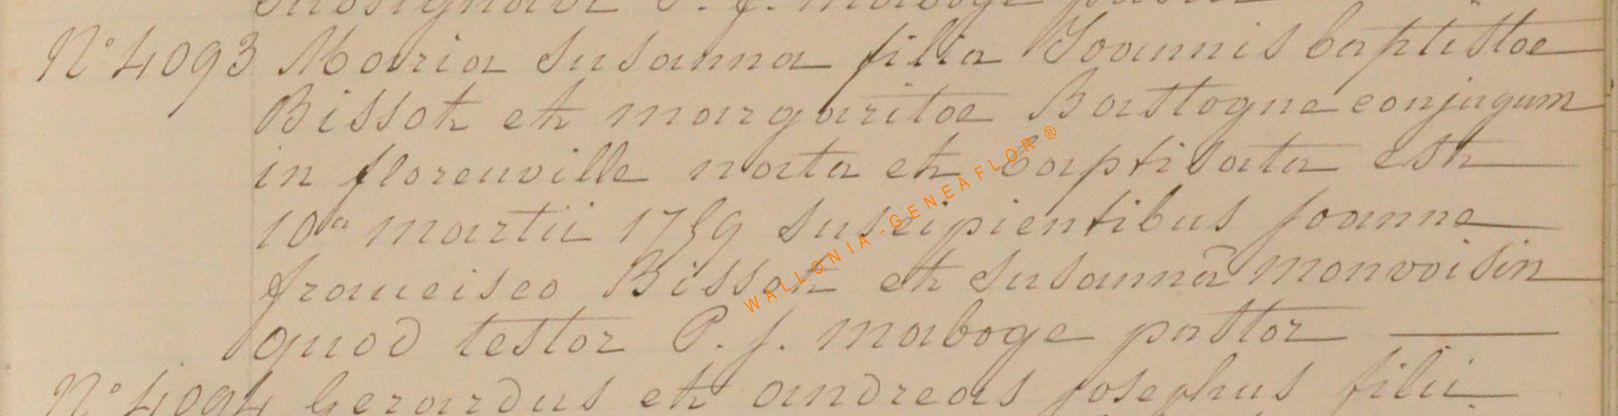 subsignavi P. J. maboge pastor
N° 4093 Maria Susanna filia Joannis baptistae
Bissot et margaritae Bastogne conjugum
in florenville nata et baptisata est
10a martii 1759 suscipientibus joanne
francisco Bissot et Susannâ monvoisin
quod testor P. j. maboge pastor
N° 4094 Gerardus et andreas josephus filii
WALLONIA-GENEAFLOR®